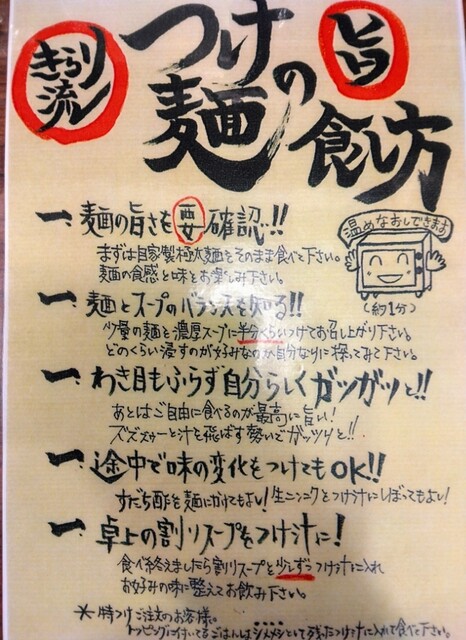 きらり流
つけ麺の食し方
旨
一、麺の旨さを要確認!!
まずは自家製極太麺をそのまま食べて下さい。
麺の食感と味とお楽しみ下さい。
温めなおしできます
(約1分)
一、麺とスープのバランスを知る!!
少量の麺と濃厚スープに半分くらいつけてお召し上がり下さい。
どのくらい浸すのが好みなのか自分なりに探ってみて下さい。
一、わき目もふらず自分らしくガツガツと!!
あとはご自由に食べるのが最高に旨い!
ズズズゥーと汁を飛ばす勢いでガッツリと!!
一、途中で味の変化をつけてもOK!!
すだち酢を麺にかけてもよい!生ニンニクとつけ汁にしぼってもよい!
一、卓上の割りスープをつけ汁に!
食べ終えましたら割りスープを少しずつつけ汁に入れ
お好みの味に整えてお飲み下さい。
*特つけご注文のお客様。
トッピングに付いてるごはんはシメメシとして残ったつけ汁に入れて食べて下さい。